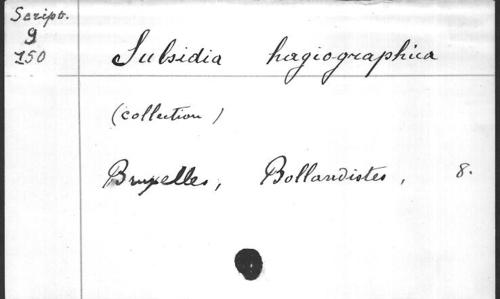 Scriptr.
9
150
Subsidia hagiographica
(collection)
Bruxelles, Bollandistes, 8.